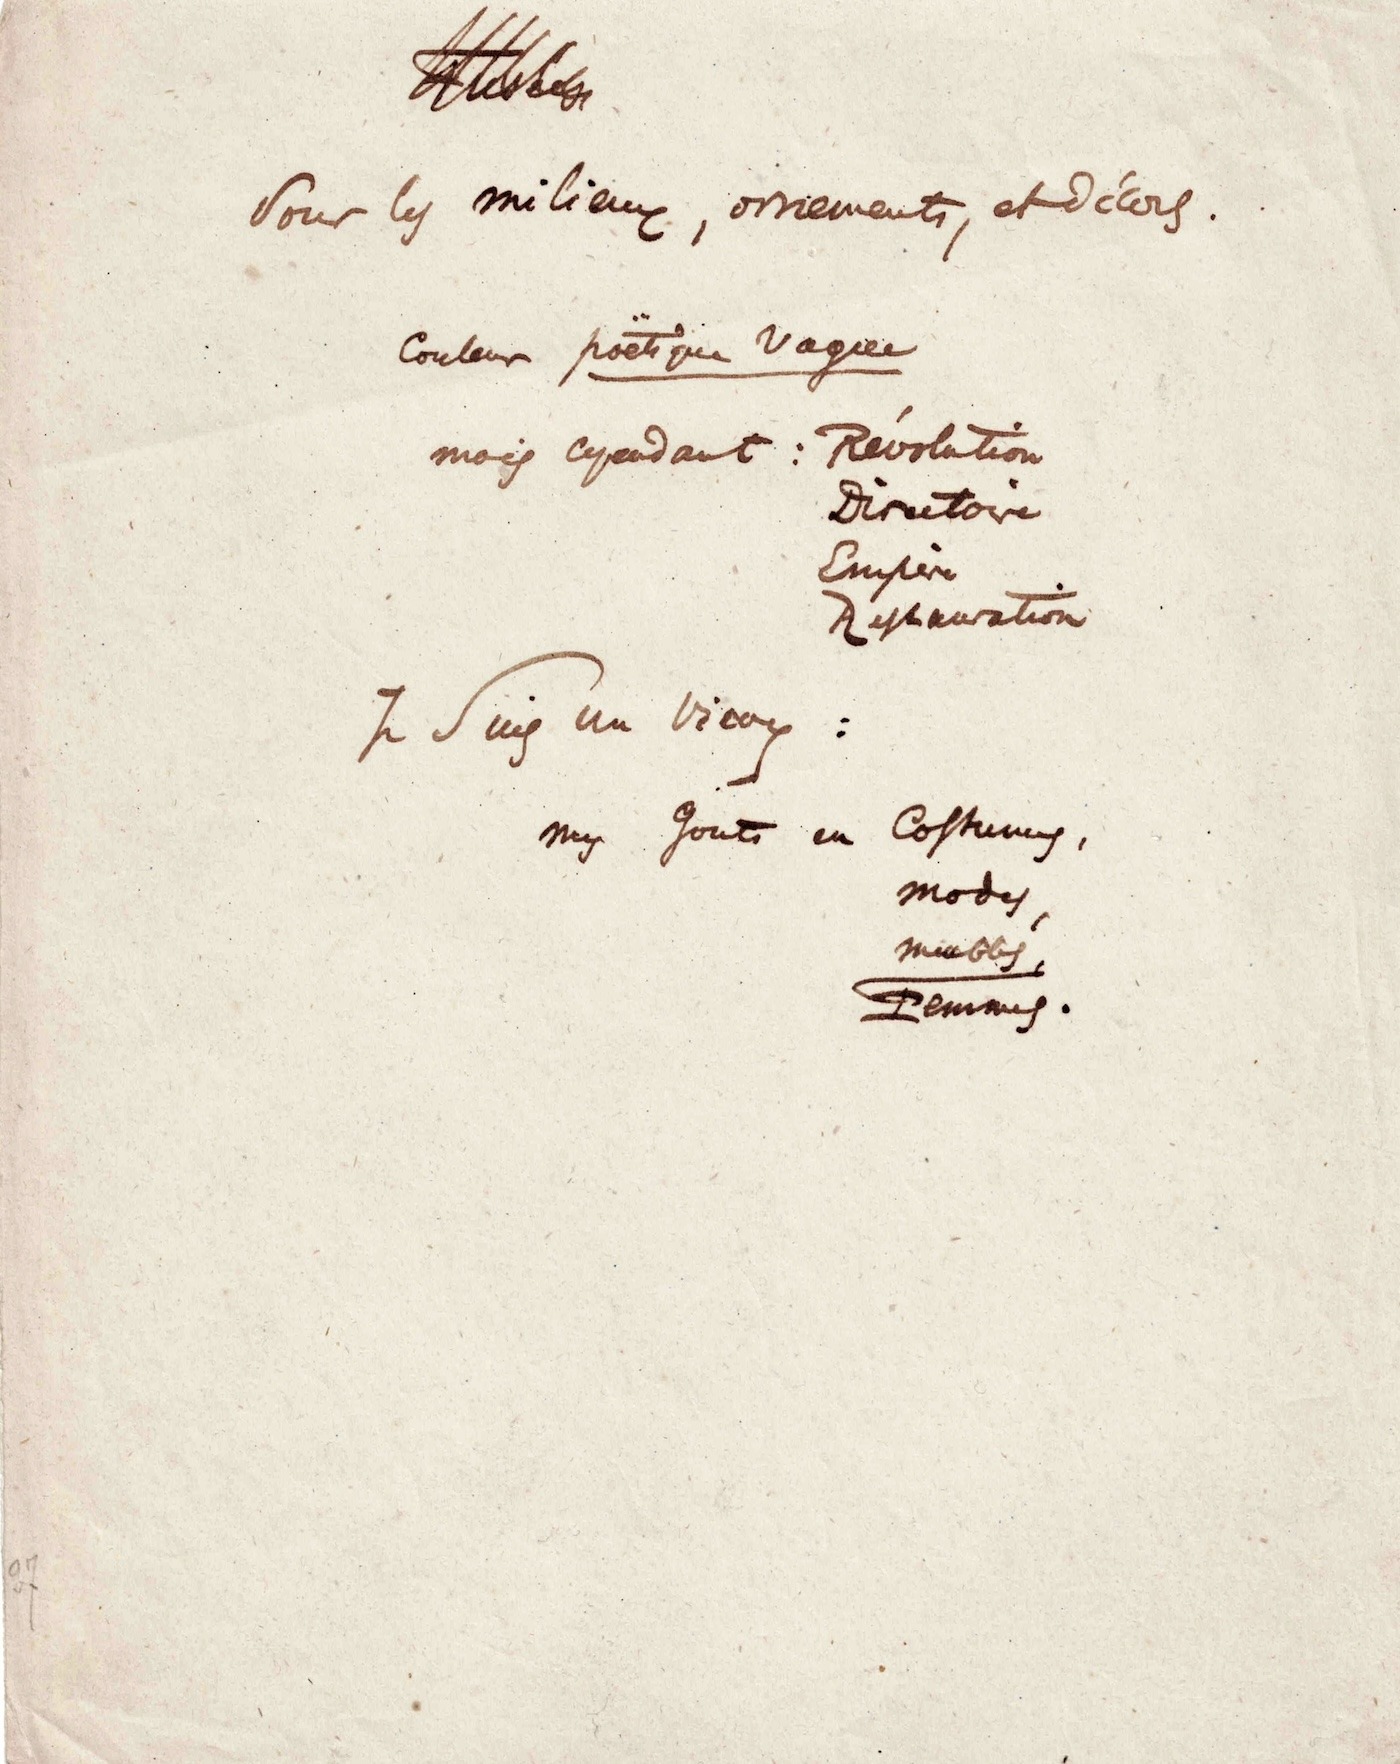 Pour les milieux, ornements, et décors.
Couleur poëtique vague
mais cependant : Révolution
Directoire
Empire
Restauration
Je suis un vieux :
mes gouts en Costumes,
modes,
meubles,
Femmes.
27